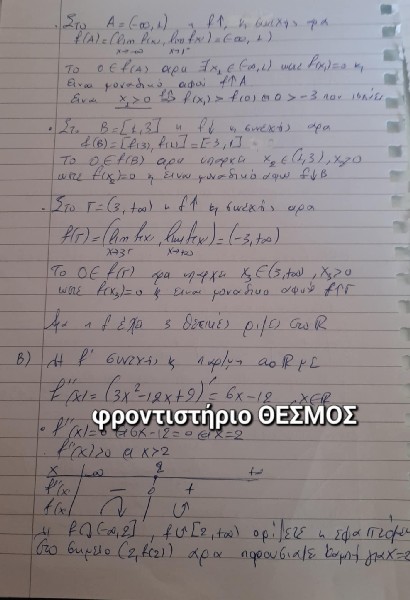 . Στο A = (-∞, 1) η f↑ κ συνεχής αρα
f(A) = (lim f(x), lim f(x)) = (-∞, 1)
x→-∞ x→1⁻
Το 0∈f(A) αρα ∃ x₁∈(-∞,1) ωστε f(x₁)=0 κ
ειναι μοναδικο αφού f↑A
x₁>0 f(x₁) > f(0) 0 > -3 που ισχύει
• Στο B = [1,3] η f↓ κ συνεχής αρα
f(B) = [f(3), f(1)] = [-3, 1]
Το 0∈f(B) αρα υπαρχει x₂∈(1,3), x₂>0
ωστε f(x₂)=0 κ ειναι μοναδικό αφου f↓B
• Στο Γ = (3, +∞) η f↑ κ συνεχής αρα
f(Γ) = (lim f(x), lim f(x)) = (-3, +∞)
x→3⁺ x→+∞
Το 0∈f(Γ) αρα υπαρχει x₃∈(3,+∞), x₃>0
ωστε f(x₃)=0 κ ειναι μοναδικο αφού f↑Γ
η f έχει 3 θετικές ρίζες στο ℝ
B) Η f' συνεχής κ παραγ/μη στο ℝ με
f''(x) = (3x²-12x+9)' = 6x-12, x∈ℝ
φροντιστήριο ΘΕΣΜΟΣ
• f''(x)=0 ⇔ 6x-12=0 ⇔ x=2
. f''(x)>0 ⇔ x>2
x -∞ 2 +∞
f''(x) - 0 +
f(x)
Η f (-∞,2], f [2,+∞) ορίζεται η εφαπτομένη
στο σημειο (2, f(2)) άρα παρουσιάζει καμπή για x=2